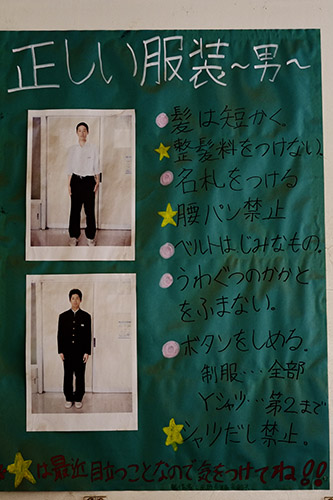 正しい服装〜男〜
髪は短かく.
★整髪料をつけない.
名札をつける
★腰パン禁止
ベルトはじみなもの.
うわぐつのかかと
をふまない。
ボタンをしめる.
制服…全部
Yシャツ…第2まで
★シャツだし禁止。
★は最近目立つことなので気をつけてね!!